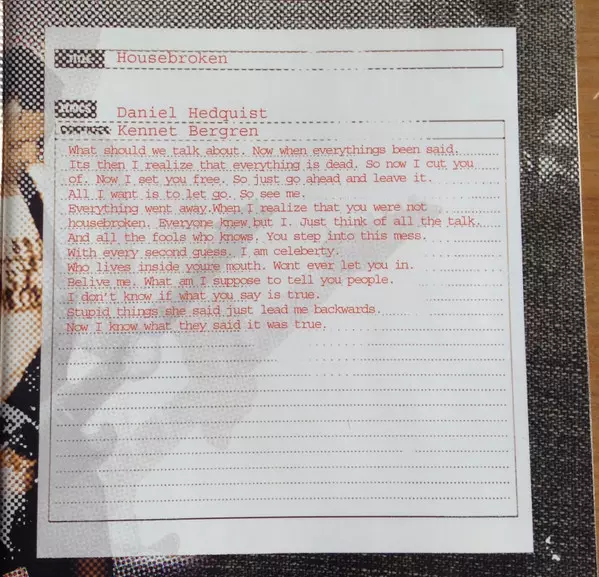 Title Housebroken
Daniel Hedquist
Kennet Bergren
What should we talk about. Now when everythings been said.
Its then I realize that everything is dead. So now I cut you
of. Now I set you free. So just go ahead and leave it.
All I want is to let go. So see me.
Everything went away.When I realize that you were not
housebroken. Everyone knew but I. Just think of all the talk.
And all the fools who knows. You step into this mess.
With every second guess. I am celeberty.
Who lives inside youre mouth. Wont ever let you in.
Belive me. What am I suppose to tell you people.
I don't know if what you say is true.
Stupid things she said just lead me backwards.
Now I know what they said it was true.